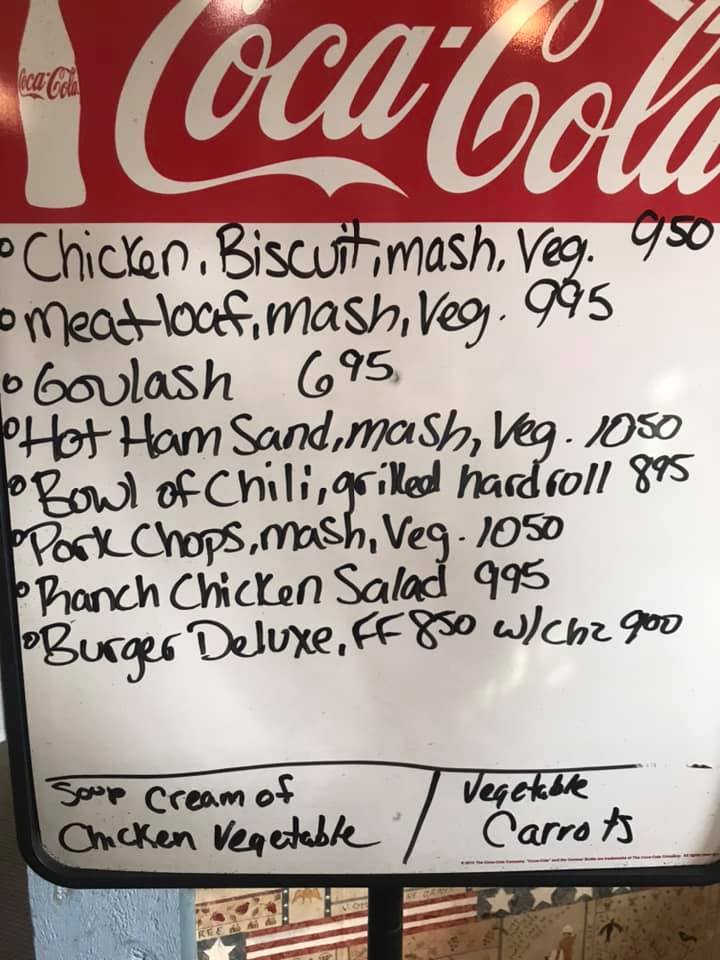 Coca-Cola
Coca-Cola
Chicken, Biscuit, mash, Veg. 950
Meatloaf, mash, Veg. 995
Goulash 695
Hot Ham Sand, mash, Veg. 1050
Bowl of Chili, grilled hard roll 895
Pork Chops, mash, Veg. 1050
Ranch Chicken Salad 995
Burger Deluxe, FF 850 w/chz 900
Soup Cream of
Chicken Vegetable
Vegetable
Carrots